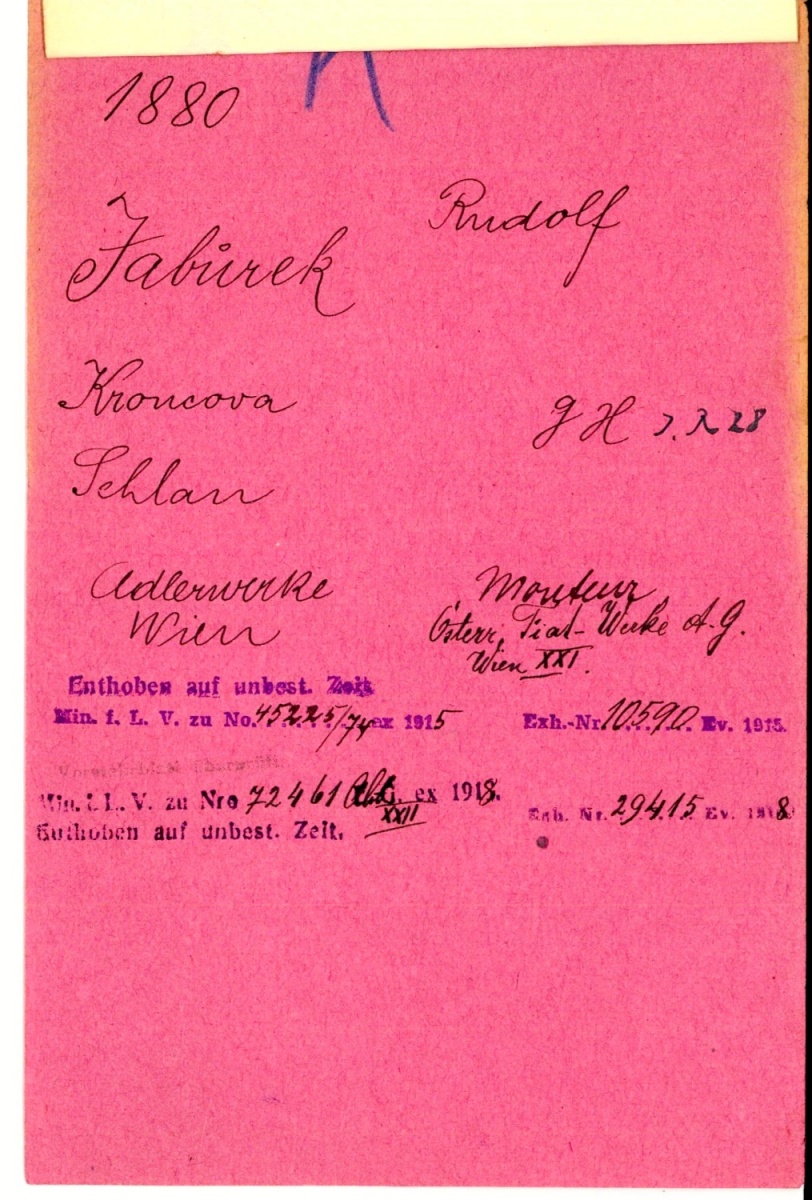 1880
Jabůrek Rudolf
Kroncova
g H J. R 28
Schlan
Adlerwerke
Wien
Monteur
Österr. Fiat-Werke A.G.
Wien XXI.
Enthoben auf unbest. Zeit
Min. f. L. V. zu No. 45225/74 ex 1915 Exh.-Nr. 10590 Ev. 1915.
Min. f. L. V. zu Nro 72461 Abt. XXII ex 1918. Exh. Nr. 29415 Ev. 1918
Enthoben auf unbest. Zeit.